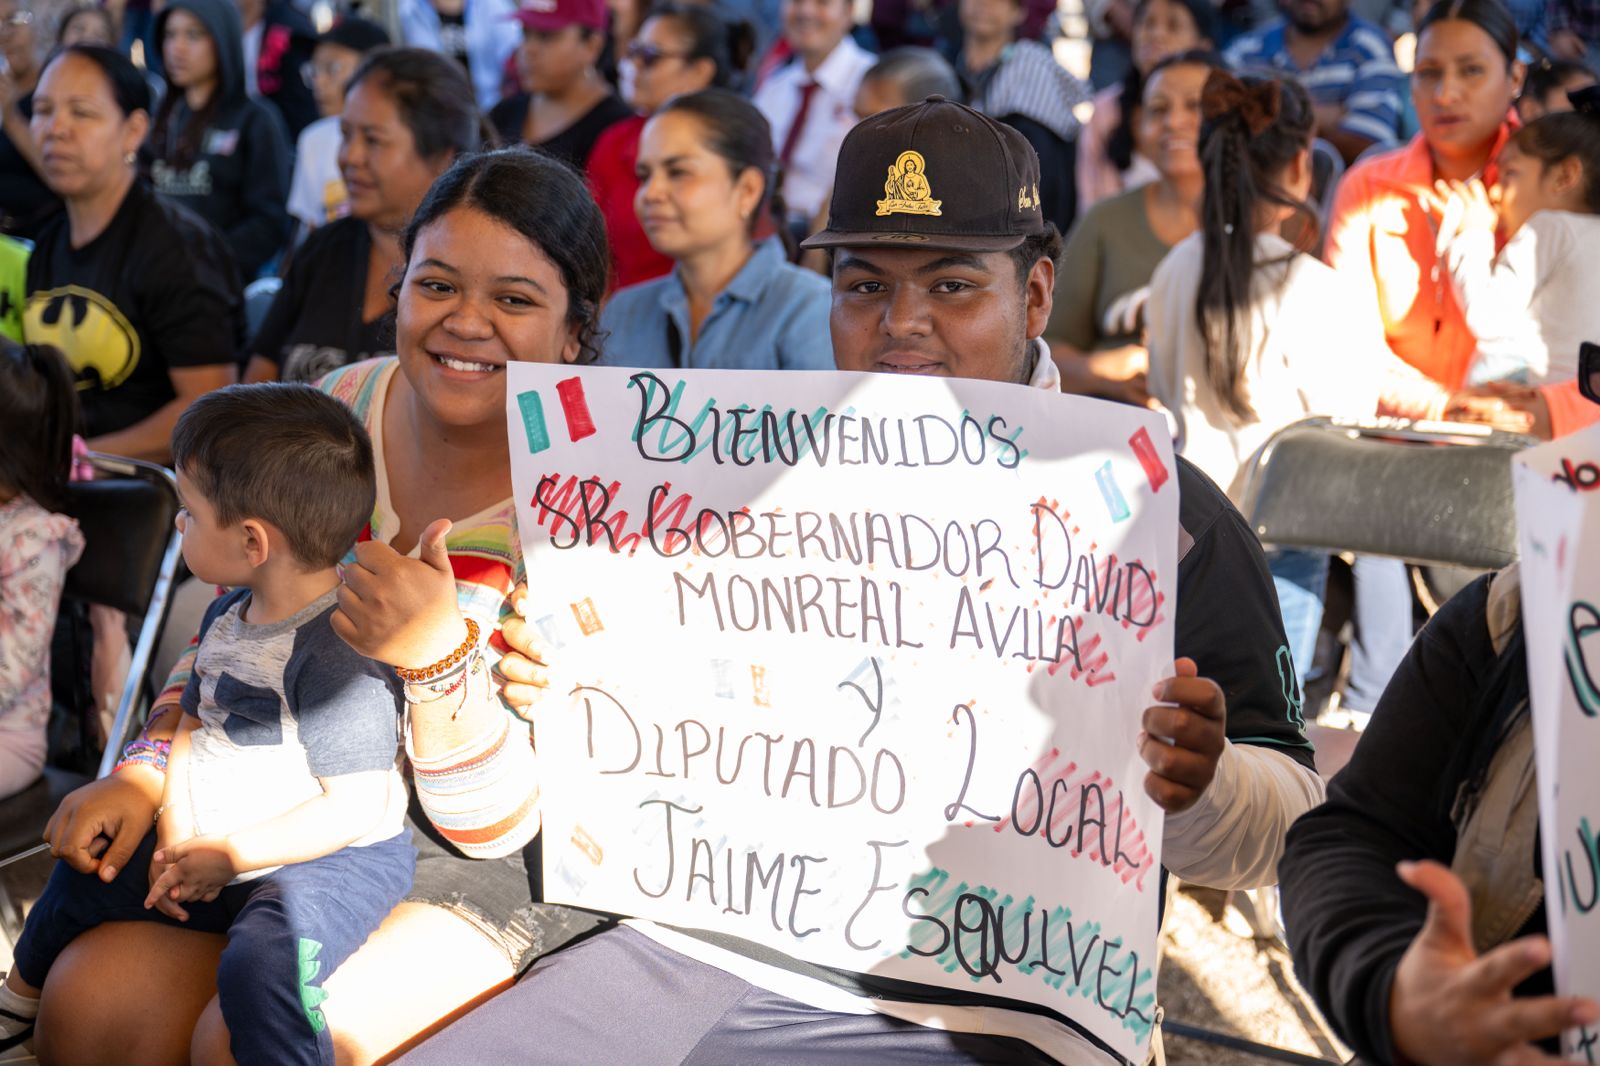 BIENVENIDOS
SR. GOBERNADOR DAVID
MONREAL AVILA.
y
DIPUTADO LOCAL
JAIME ESQUIVEL